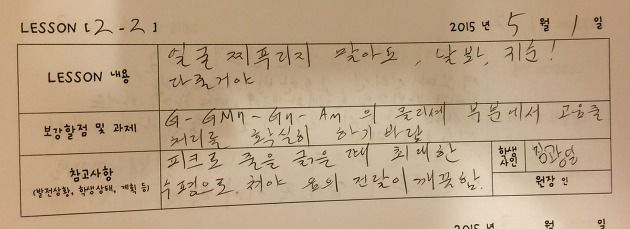 LESSON [ 2-2 ] 2015 년 5 월 1 일
LESSON 내용
얼굴 찌푸리지 말아요, 날봐, 귀순!
다줄거야
보강할점 및 과제
G - GM7 - G7 - Am 의 클리셰 부분에서 고음률
처리를 확실히 하기 바람
참고사항
(발전상황, 학생상태, 계획 등)
피크로 줄을 긁을 때 최대한
수평으로 쳐야 음의 전달이 깨끗함.
학생
사인
원장 인
2015 년 월 일